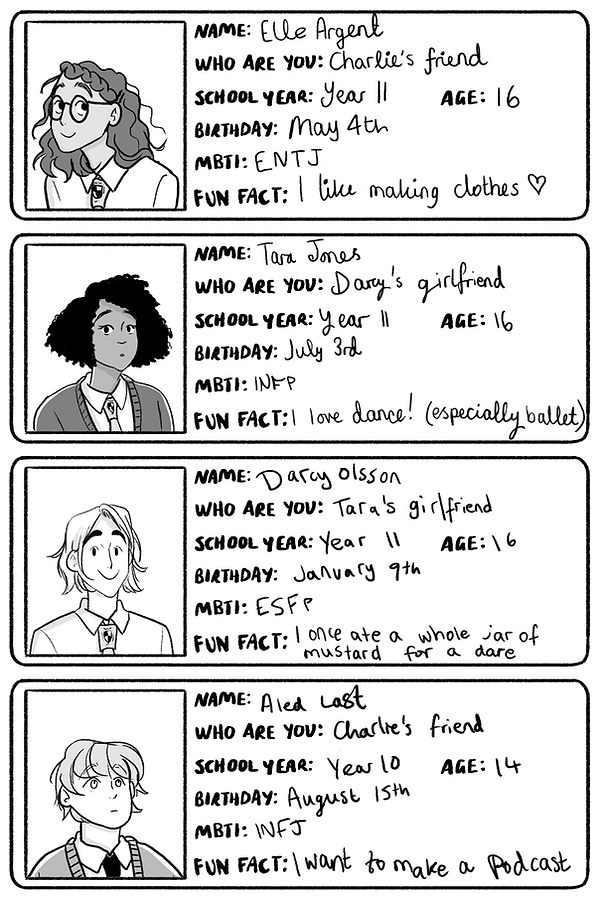 NAME: Elle Argent
WHO ARE YOU: Charlie's friend
SCHOOL YEAR: Year 11 AGE: 16
BIRTHDAY: May 4th
MBTI: ENTJ
FUN FACT: I like making clothes ♡
NAME: Tara Jones
WHO ARE YOU: Darcy's girlfriend
SCHOOL YEAR: Year 11 AGE: 16
BIRTHDAY: July 3rd
MBTI: INFP
FUN FACT: I love dance! (especially ballet)
NAME: Darcy Olsson
WHO ARE YOU: Tara's girlfriend
SCHOOL YEAR: Year 11 AGE: 16
BIRTHDAY: January 9th
MBTI: ESFP
FUN FACT: I once ate a whole jar of
mustard for a dare
NAME: Aled Last
WHO ARE YOU: Charlie's friend
SCHOOL YEAR: Year 10 AGE: 14
BIRTHDAY: August 15th
MBTI: INFJ
FUN FACT: I want to make a podcast